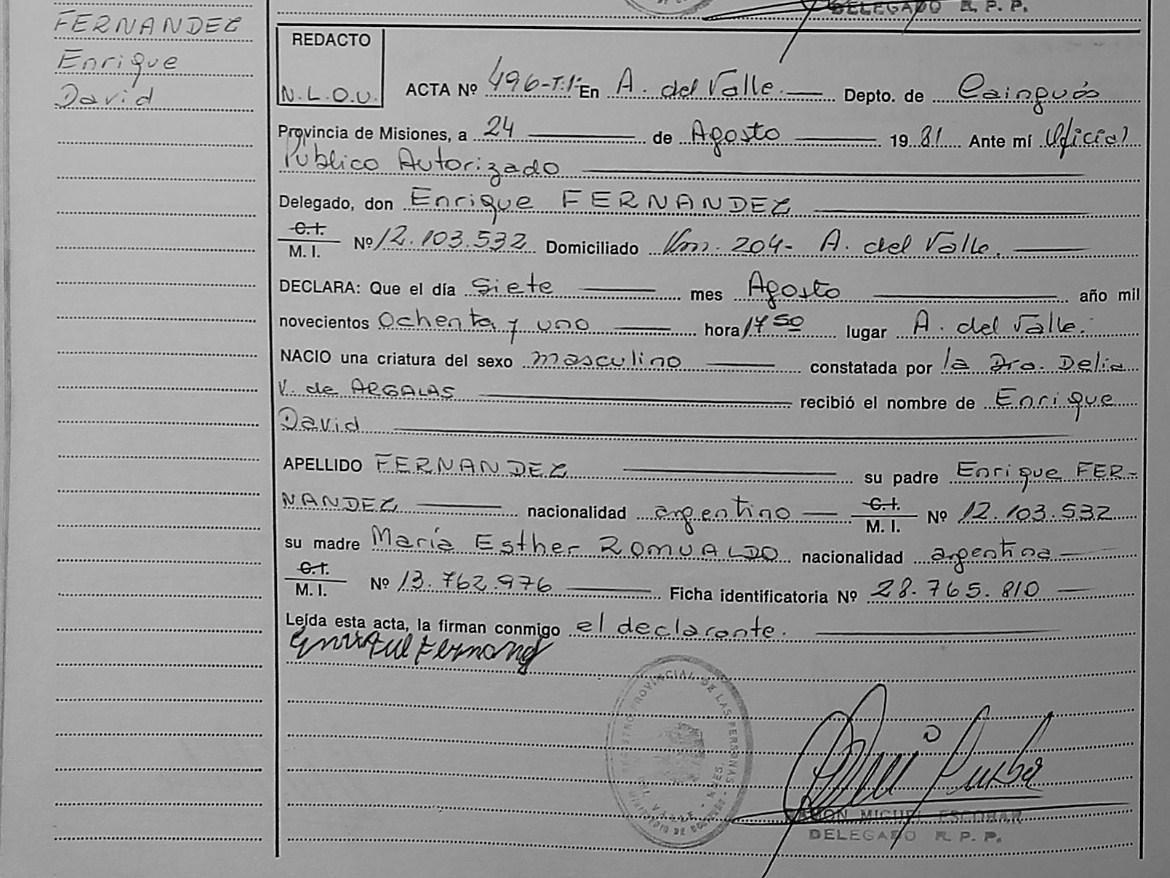 DELEGADO R. P. P.
FERNANDEZ
Enrique
David
REDACTO
N.L.O.U.
ACTA Nº 496-T.1- En A. del Valle. Depto. de Cainguás
Provincia de Misiones, a 24 de Agosto 19 81 Ante mí Oficial
Público Autorizado
Delegado, don Enrique FERNANDEZ
C.I.
M. I. Nº 12.103.532 Domiciliado Km. 204- A. del Valle.
DECLARA: Que el día siete mes Agosto año mil
novecientos Ochenta y uno hora 17 50 lugar A. del Valle.
NACIO una criatura del sexo masculino constatada por la Dra. Delia
V. de ARGALAS recibió el nombre de Enrique
David
APELLIDO FERNANDEZ su padre Enrique FER-
NANDEZ nacionalidad argentino C.I. M. I. Nº 12.103.532
su madre María Esther ROMUALDO nacionalidad argentina
C.I.
M. I. Nº 13.762.976 Ficha identificatoria Nº 28.765.810
Leída esta acta, la firman conmigo el declarante.
RAMON MIGUEL ESCOBAR
DELEGADO R. P. P.